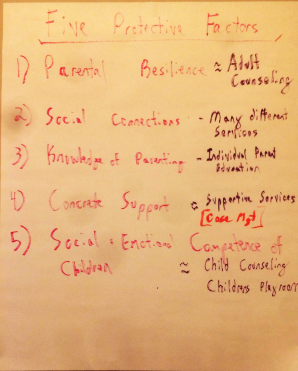 Five Protective Factors
1) Parental Resilience ≈ Adult Counseling
2) Social Connections - Many different Services
3) Knowledge of Parenting - Individual Parent Education
4) Concrete Support ≈ Supportive Services
[Case Mgt]
5) Social & Emotional Competence of
Children ≈ Child Counseling
Childrens Playroom